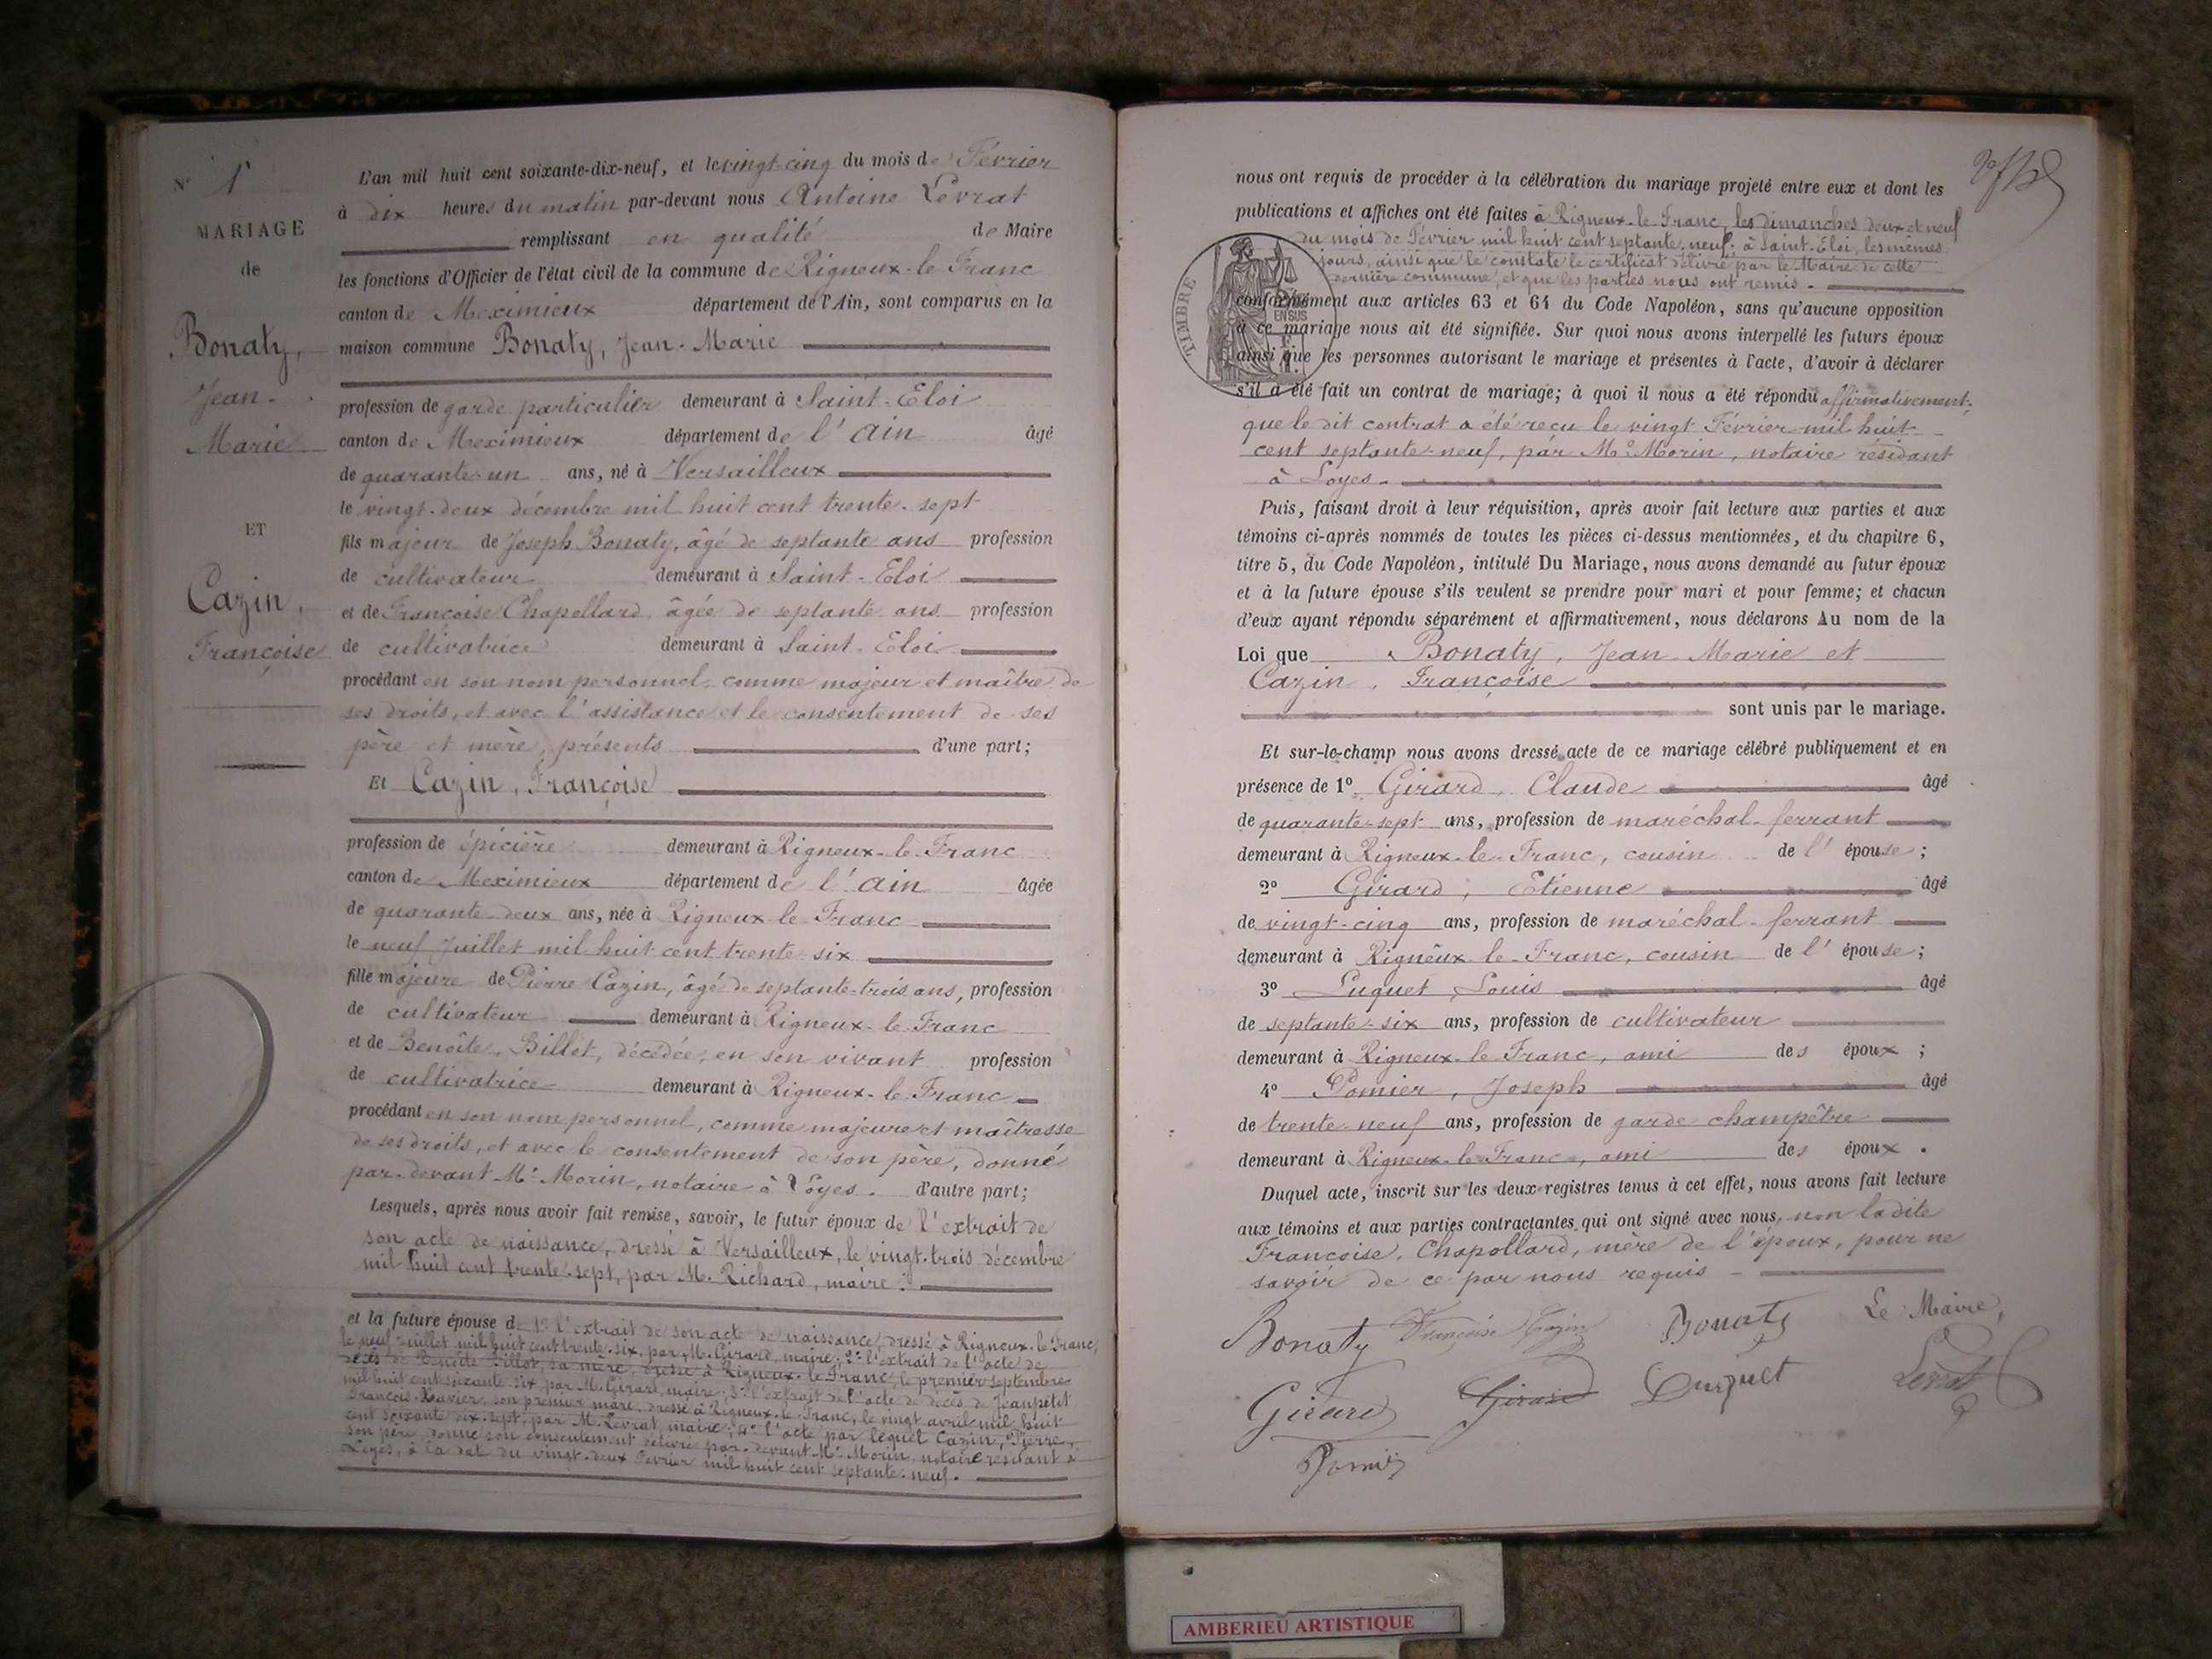 N° 1
MARIAGE
de
Bonaty,
Jean-
Marie
ET
Cazin,
Françoise
L'an mil huit cent soixante-dix-neuf, et le vingt-cinq du mois de Février
à dix heures du matin par-devant nous Antoine Levrat
remplissant en qualité de Maire
les fonctions d'Officier de l'état civil de la commune de Rigneux-le-Franc
canton de Meximieux département de l'Ain, sont comparus en la
maison commune Bonaty, Jean-Marie
profession de garde particulier demeurant à Saint-Eloi
canton de Meximieux département de l'Ain âgé
de quarante-un ans, né à Versailleux
le vingt-deux décembre mil huit cent trente-sept
fils majeur de Joseph Bonaty, âgé de septante ans profession
de cultivateur demeurant à Saint-Eloi
et de Françoise Chapollard, âgée de septante ans profession
de cultivatrice demeurant à Saint-Eloi
procédant en son nom personnel, comme majeur et maître de
ses droits, et avec l'assistance et le consentement de ses
père et mère, présents d'une part;
Et Cazin, Françoise
profession de épicière demeurant à Rigneux-le-Franc
canton de Meximieux département de l'Ain âgée
de quarante-deux ans, née à Rigneux-le-Franc
le neuf Juillet mil huit cent trente-six
fille majeure de Pierre Cazin, âgé de septante-trois ans, profession
de cultivateur demeurant à Rigneux-le-Franc
et de Benoîte Billet, décédée, en son vivant profession
de cultivatrice demeurant à Rigneux-le-Franc
procédant en son nom personnel, comme majeure et maîtresse
de ses droits, et avec le consentement de son père, donné
par-devant Me Morin, notaire à Loyes. d'autre part;
Lesquels, après nous avoir fait remise, savoir, le futur époux de l'extrait de
son acte de naissance, dressé à Versailleux, le vingt-trois décembre
mil huit cent trente-sept, par M. Richard, maire:
et la future épouse de 1° l'extrait de son acte de naissance, dressé à Rigneux-le-Franc,
le neuf Juillet mil huit cent trente-six, par M. Girard, maire; 2° l'extrait de l'acte de
décès de Benoîte Billet, sa mère, dressé à Rigneux-le-Franc, le premier septembre
mil huit cent soixante-six, par M. Girard, maire; 3° l'extrait de l'acte de décès de Jeanpetit
François-Xavier, son premier mari, dressé à Rigneux-le-Franc, le vingt avril mil huit
cent soixante-dix-sept, par M. Levrat, maire; 4° l'acte par lequel Cazin, Pierre,
son père, donne son consentement délivré par-devant Me Morin notaire résidant à
Loyes, à la date du vingt-deux Février mil huit cent septante-neuf.
nous ont requis de procéder à la célébration du mariage projeté entre eux et dont les
publications et affiches ont été faites à Rigneux-le-Franc, les dimanches deux et neuf
du mois de Février mil huit cent septante-neuf; à Saint-Eloi, les mêmes
jours, ainsi que le constate le certificat délivré par le Maire de cette
dernière commune, et que les parties nous ont remis.
TIMBRE
EN SUS
conformément aux articles 63 et 64 du Code Napoléon, sans qu'aucune opposition
à ce mariage nous ait été signifiée. Sur quoi nous avons interpellé les futurs époux
ainsi que les personnes autorisant le mariage et présentes à l'acte, d'avoir à déclarer
s'il a été fait un contrat de mariage; à quoi il nous a été répondu affirmativement;
que le dit contrat a été reçu le vingt Février mil huit
cent septante-neuf, par Me Morin, notaire résidant
à Loyes.
Puis, faisant droit à leur réquisition, après avoir fait lecture aux parties et aux
témoins ci-après nommés de toutes les pièces ci-dessus mentionnées, et du chapitre 6,
titre 5, du Code Napoléon, intitulé Du Mariage, nous avons demandé au futur époux
et à la future épouse s'ils veulent se prendre pour mari et pour femme; et chacun
d'eux ayant répondu séparément et affirmativement, nous déclarons Au nom de la
Loi que Bonaty, Jean-Marie et
Cazin, Françoise
sont unis par le mariage.
Et sur-le-champ nous avons dressé acte de ce mariage célébré publiquement et en
présence de 1° Girard, Claude âgé
de quarante-sept ans, profession de maréchal-ferrant
demeurant à Rigneux-le-Franc, cousin de l'épouse;
2° Girard, Etienne âgé
de vingt-cinq ans, profession de maréchal-ferrant
demeurant à Rigneux-le-Franc, cousin de l'épouse;
3° Luquet, Louis âgé
de septante-six ans, profession de cultivateur
demeurant à Rigneux-le-Franc, ami des époux;
4° Pomier, Joseph âgé
de trente-neuf ans, profession de garde champêtre
demeurant à Rigneux-le-Franc, ami des époux.
Duquel acte, inscrit sur les deux registres tenus à cet effet, nous avons fait lecture
aux témoins et aux parties contractantes qui ont signé avec nous, non ladite
Françoise Chapollard, mère de l'époux, pour ne
savoir de ce par nous requis
Bonaty Françoise Cazin Bonaty Le Maire,
Girard Girard Luquet Levrat
Pomier
AMBERIEU ARTISTIQUE